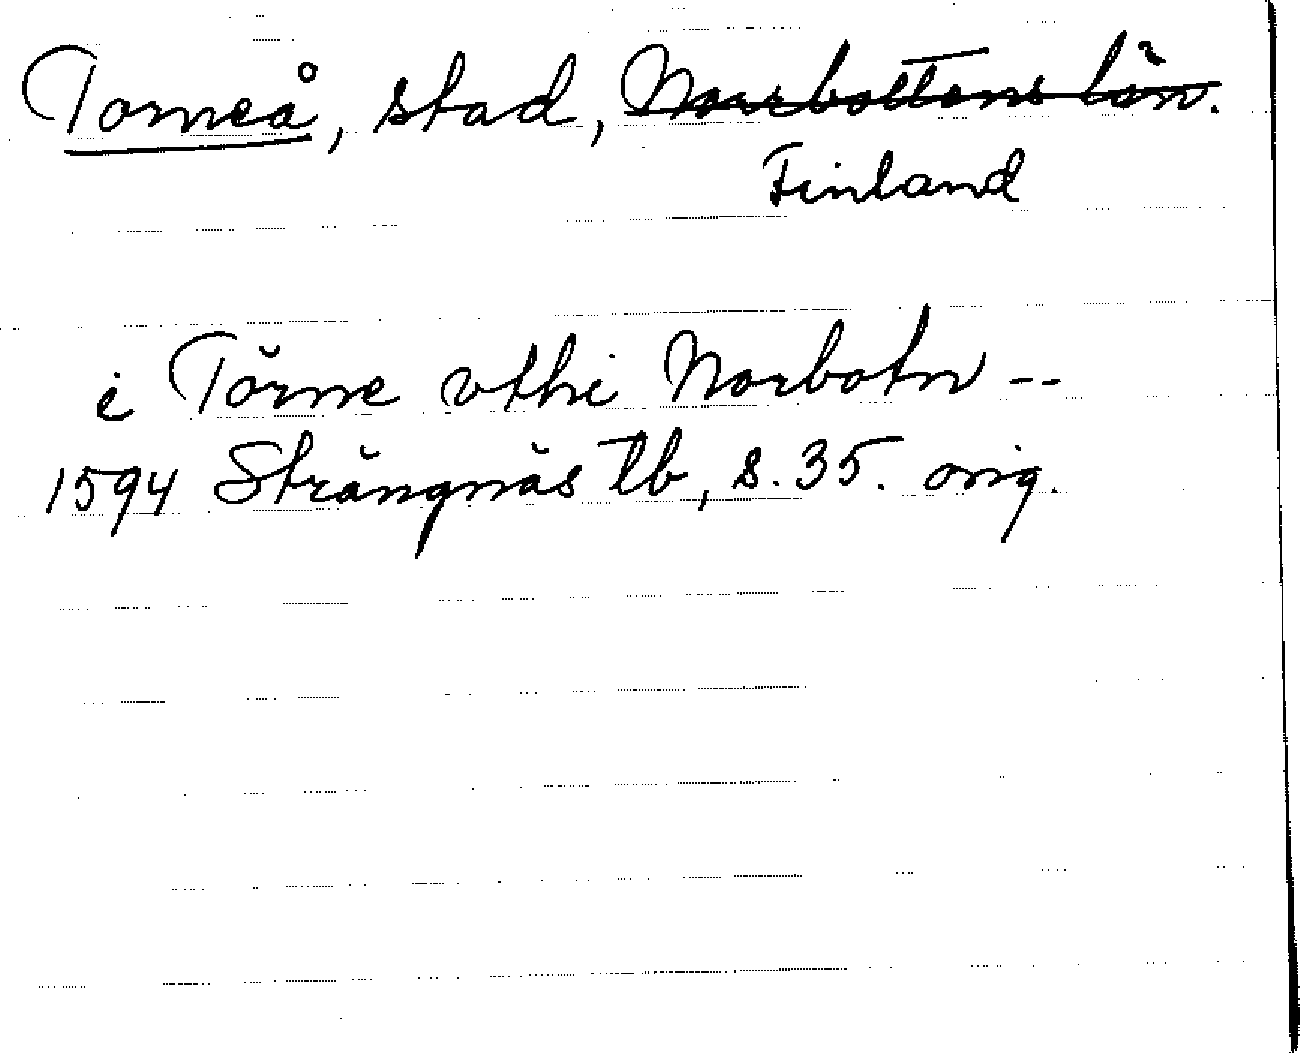 Torneå, stad, Norrbottens län.
Finland
i Törne vthi Norbotn --
1594 Strängnäs tb, s. 35. orig.